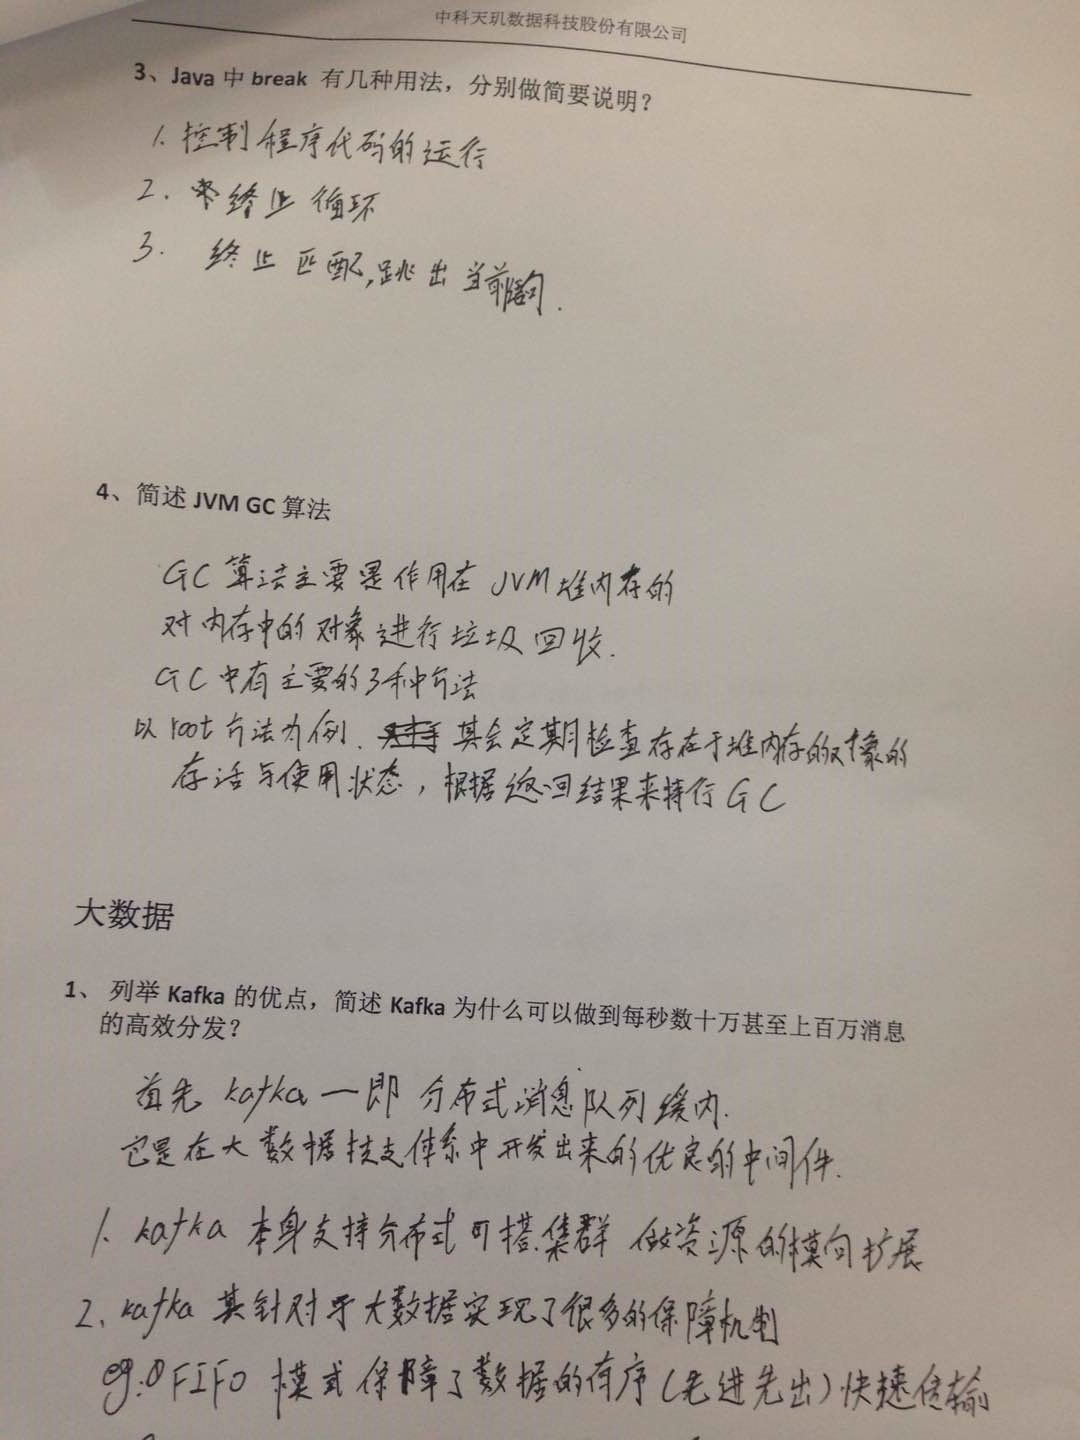 中科天玑数据科技股份有限公司
3、Java 中 break 有几种用法，分别做简要说明？
1. 控制程序代码的运行
2. 终止循环
3. 终止匹配,跳出当前语句.
4、简述 JVM GC 算法
GC 算法主要是作用在 JVM 堆内存的
对内存中的对象进行垃圾回收.
GC 中有主要的3种方法
以 root 方法为例、其会定期检查存在于堆内存的对像的
存活与使用状态，根据返回结果来持行 GC
大数据
1、 列举 Kafka 的优点，简述 Kafka 为什么可以做到每秒数十万甚至上百万消息
的高效分发？
首先 kafka 一即 分布式消息队列缓内.
它是在大数据技支体系中开发出来的优良的中间件.
1. kafka 本身支持分布式可搭集群 做资源的横向扩展
2. kafka 其针对于大数据实现了很多的保障机制
eg:① FIFO 模式保障了数据的有序(先进先出)快速传输